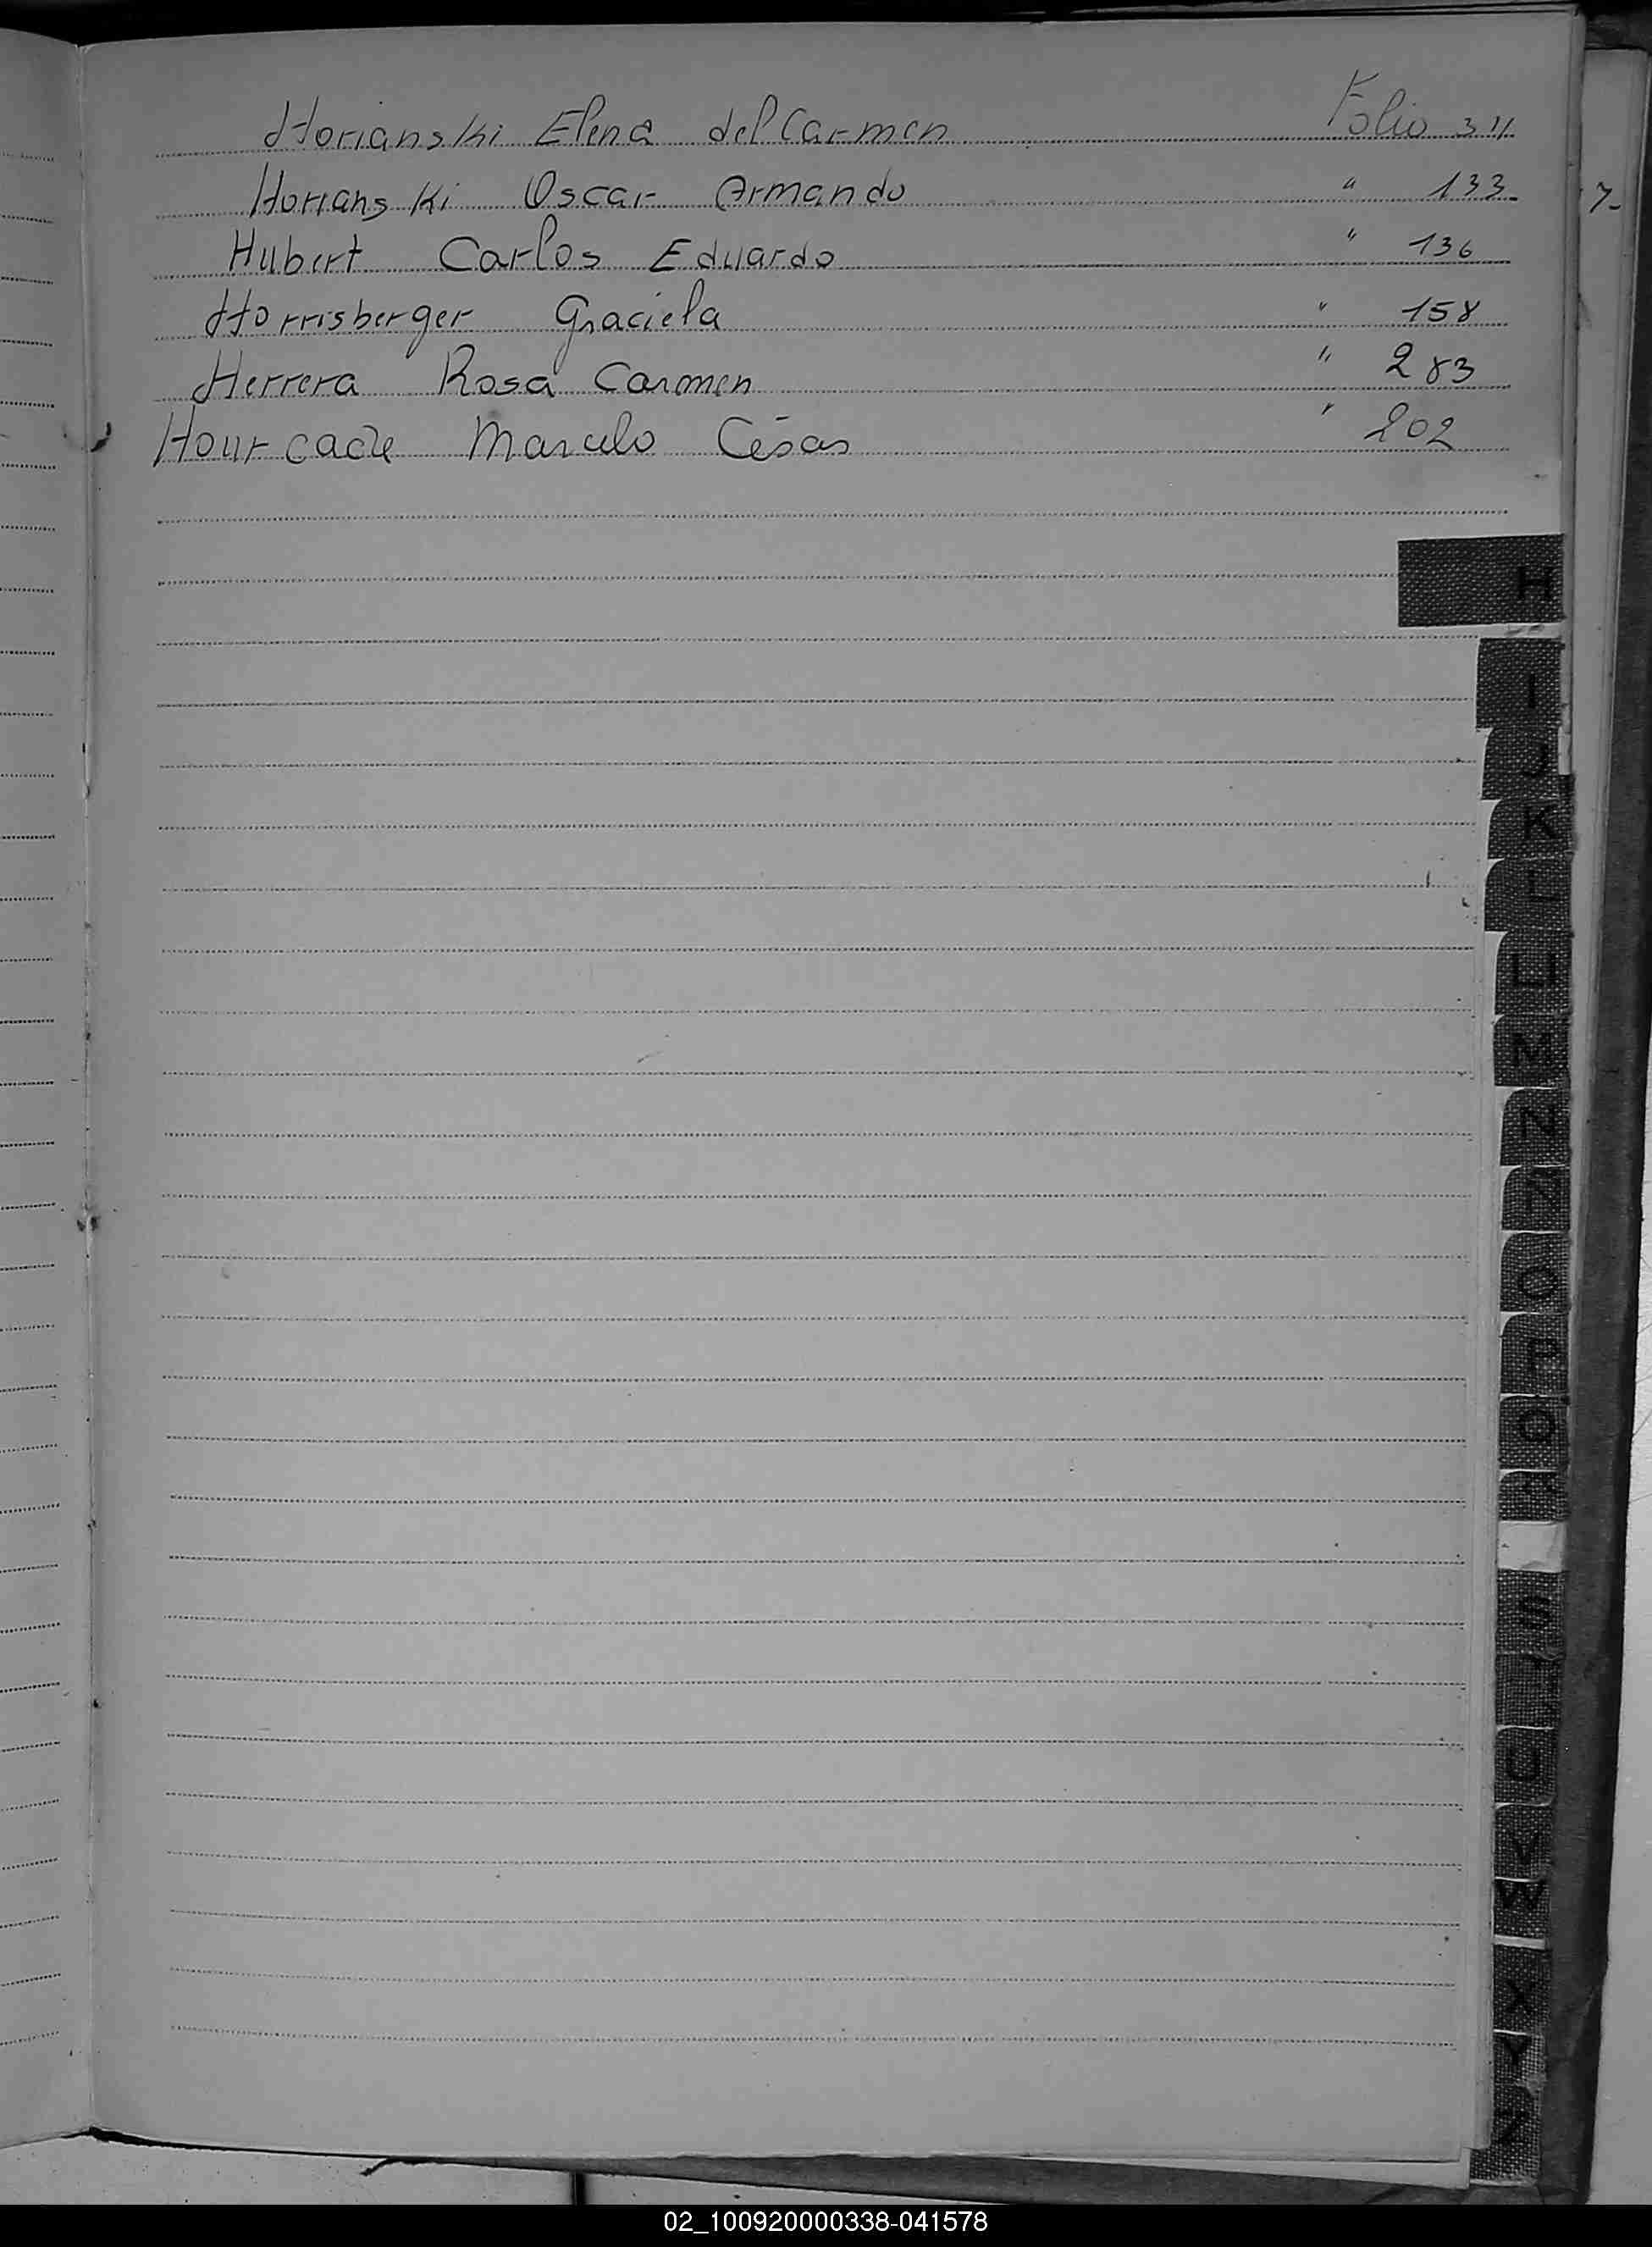 Horianski Elena del Carmen Folio 34
Horianski Oscar Armando " 133-
Hubert Carlos Eduardo " 136
Horrisberger Graciela " 158
Herrera Rosa Carmen " 283
Hourcade Marcelo César " 202
7-
H
I
J
K
L
LL
M
N
Ñ
O
P
Q
S
U
V
W
X
Y
Z
02_100920000338-041578